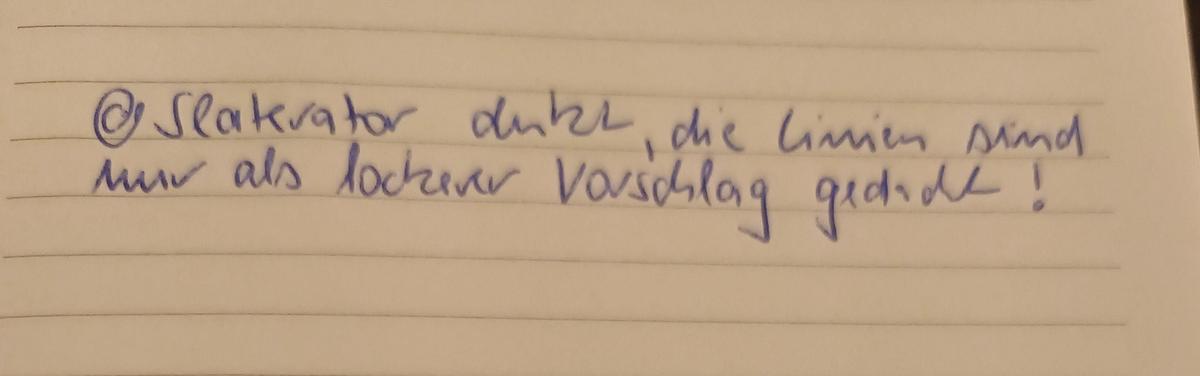 @Slaterator denkt, die Linien sind
nur als lockerer Vorschlag gedacht!